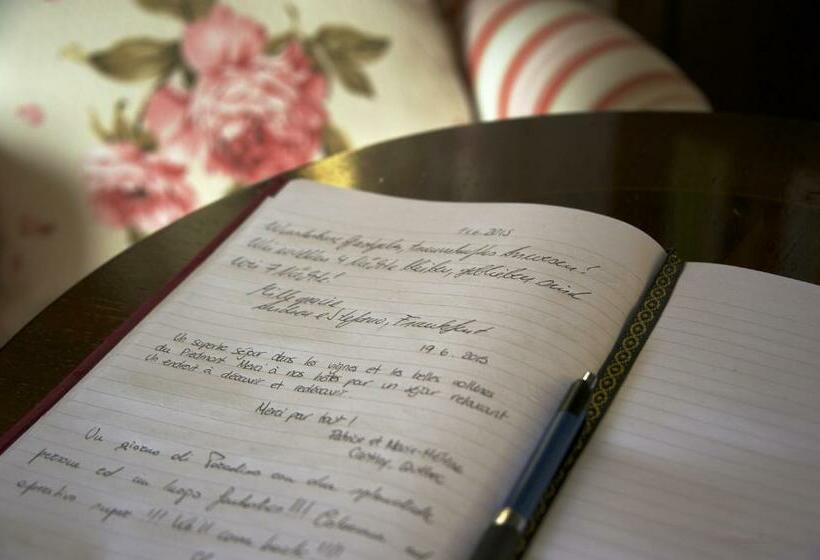 1.6.2015
Wunderbare Gastgeber, traumhaftes Anwesen!
Wir wollten 4 Nächte bleiben, geblieben sind
wir 7 Nächte!
Mille grazie
Andrea e Stefano, Frankfurt
19.6.2015
Un superbe séjour dans les vignes et les belles collines
du Piedmont. Merci à nos hôtes pour un séjour relaxant
Un endroit à découvrir et redécouvrir.
Merci par tout!
Patrice et Marie-Hélène
Québec
Un giorno di Paradiso con due splendide
persone ed un luogo fantastico!!!! Colazione ed
aperitivo super!!! We'll come back!!!!